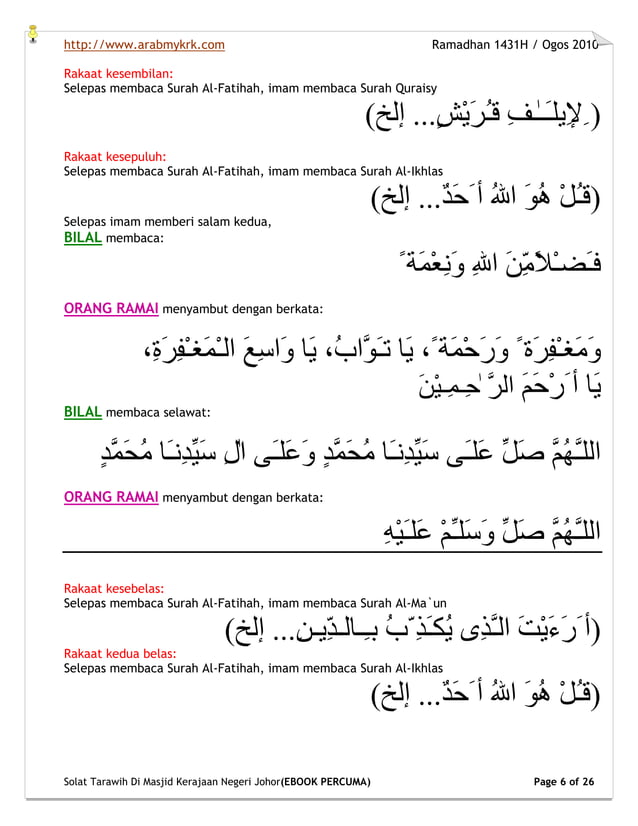 http://www.arabmykrk.com Ramadhan 1431H / Ogos 2010
Rakaat kesembilan:
Selepas membaca Surah Al-Fatihah, imam membaca Surah Quraisy
(لإِيلَـٰـفِ قُرَيْشٍ... إلخ)
Rakaat kesepuluh:
Selepas membaca Surah Al-Fatihah, imam membaca Surah Al-Ikhlas
(قُلْ هُوَ اللهُ أَحَدٌ... إلخ)
Selepas imam memberi salam kedua,
BILAL membaca:
فَضْلاً مِّنَ اللهِ وَنِعْمَةً
ORANG RAMAI menyambut dengan berkata:
وَمَغْفِرَةً وَرَحْمَةً، يَا تَوَّابُ، يَا وَاسِعَ الْمَغْفِرَةِ،
يَا أَرْحَمَ الرَّٰحِمِيْنَ
BILAL membaca selawat:
اللَّهُمَّ صَلِّ عَلَى سَيِّدِنَا مُحَمَّدٍ وَعَلَى اٰلِ سَيِّدِنَا مُحَمَّدٍ
ORANG RAMAI menyambut dengan berkata:
اللَّهُمَّ صَلِّ وَسَلِّمْ عَلَيْهِ
Rakaat kesebelas:
Selepas membaca Surah Al-Fatihah, imam membaca Surah Al-Ma`un
(أَرَءَيْتَ الَّذِى يُكَذِّبُ بِالدِّينِ... إلخ)
Rakaat kedua belas:
Selepas membaca Surah Al-Fatihah, imam membaca Surah Al-Ikhlas
(قُلْ هُوَ اللهُ أَحَدٌ... إلخ)
Solat Tarawih Di Masjid Kerajaan Negeri Johor(EBOOK PERCUMA) Page 6 of 26